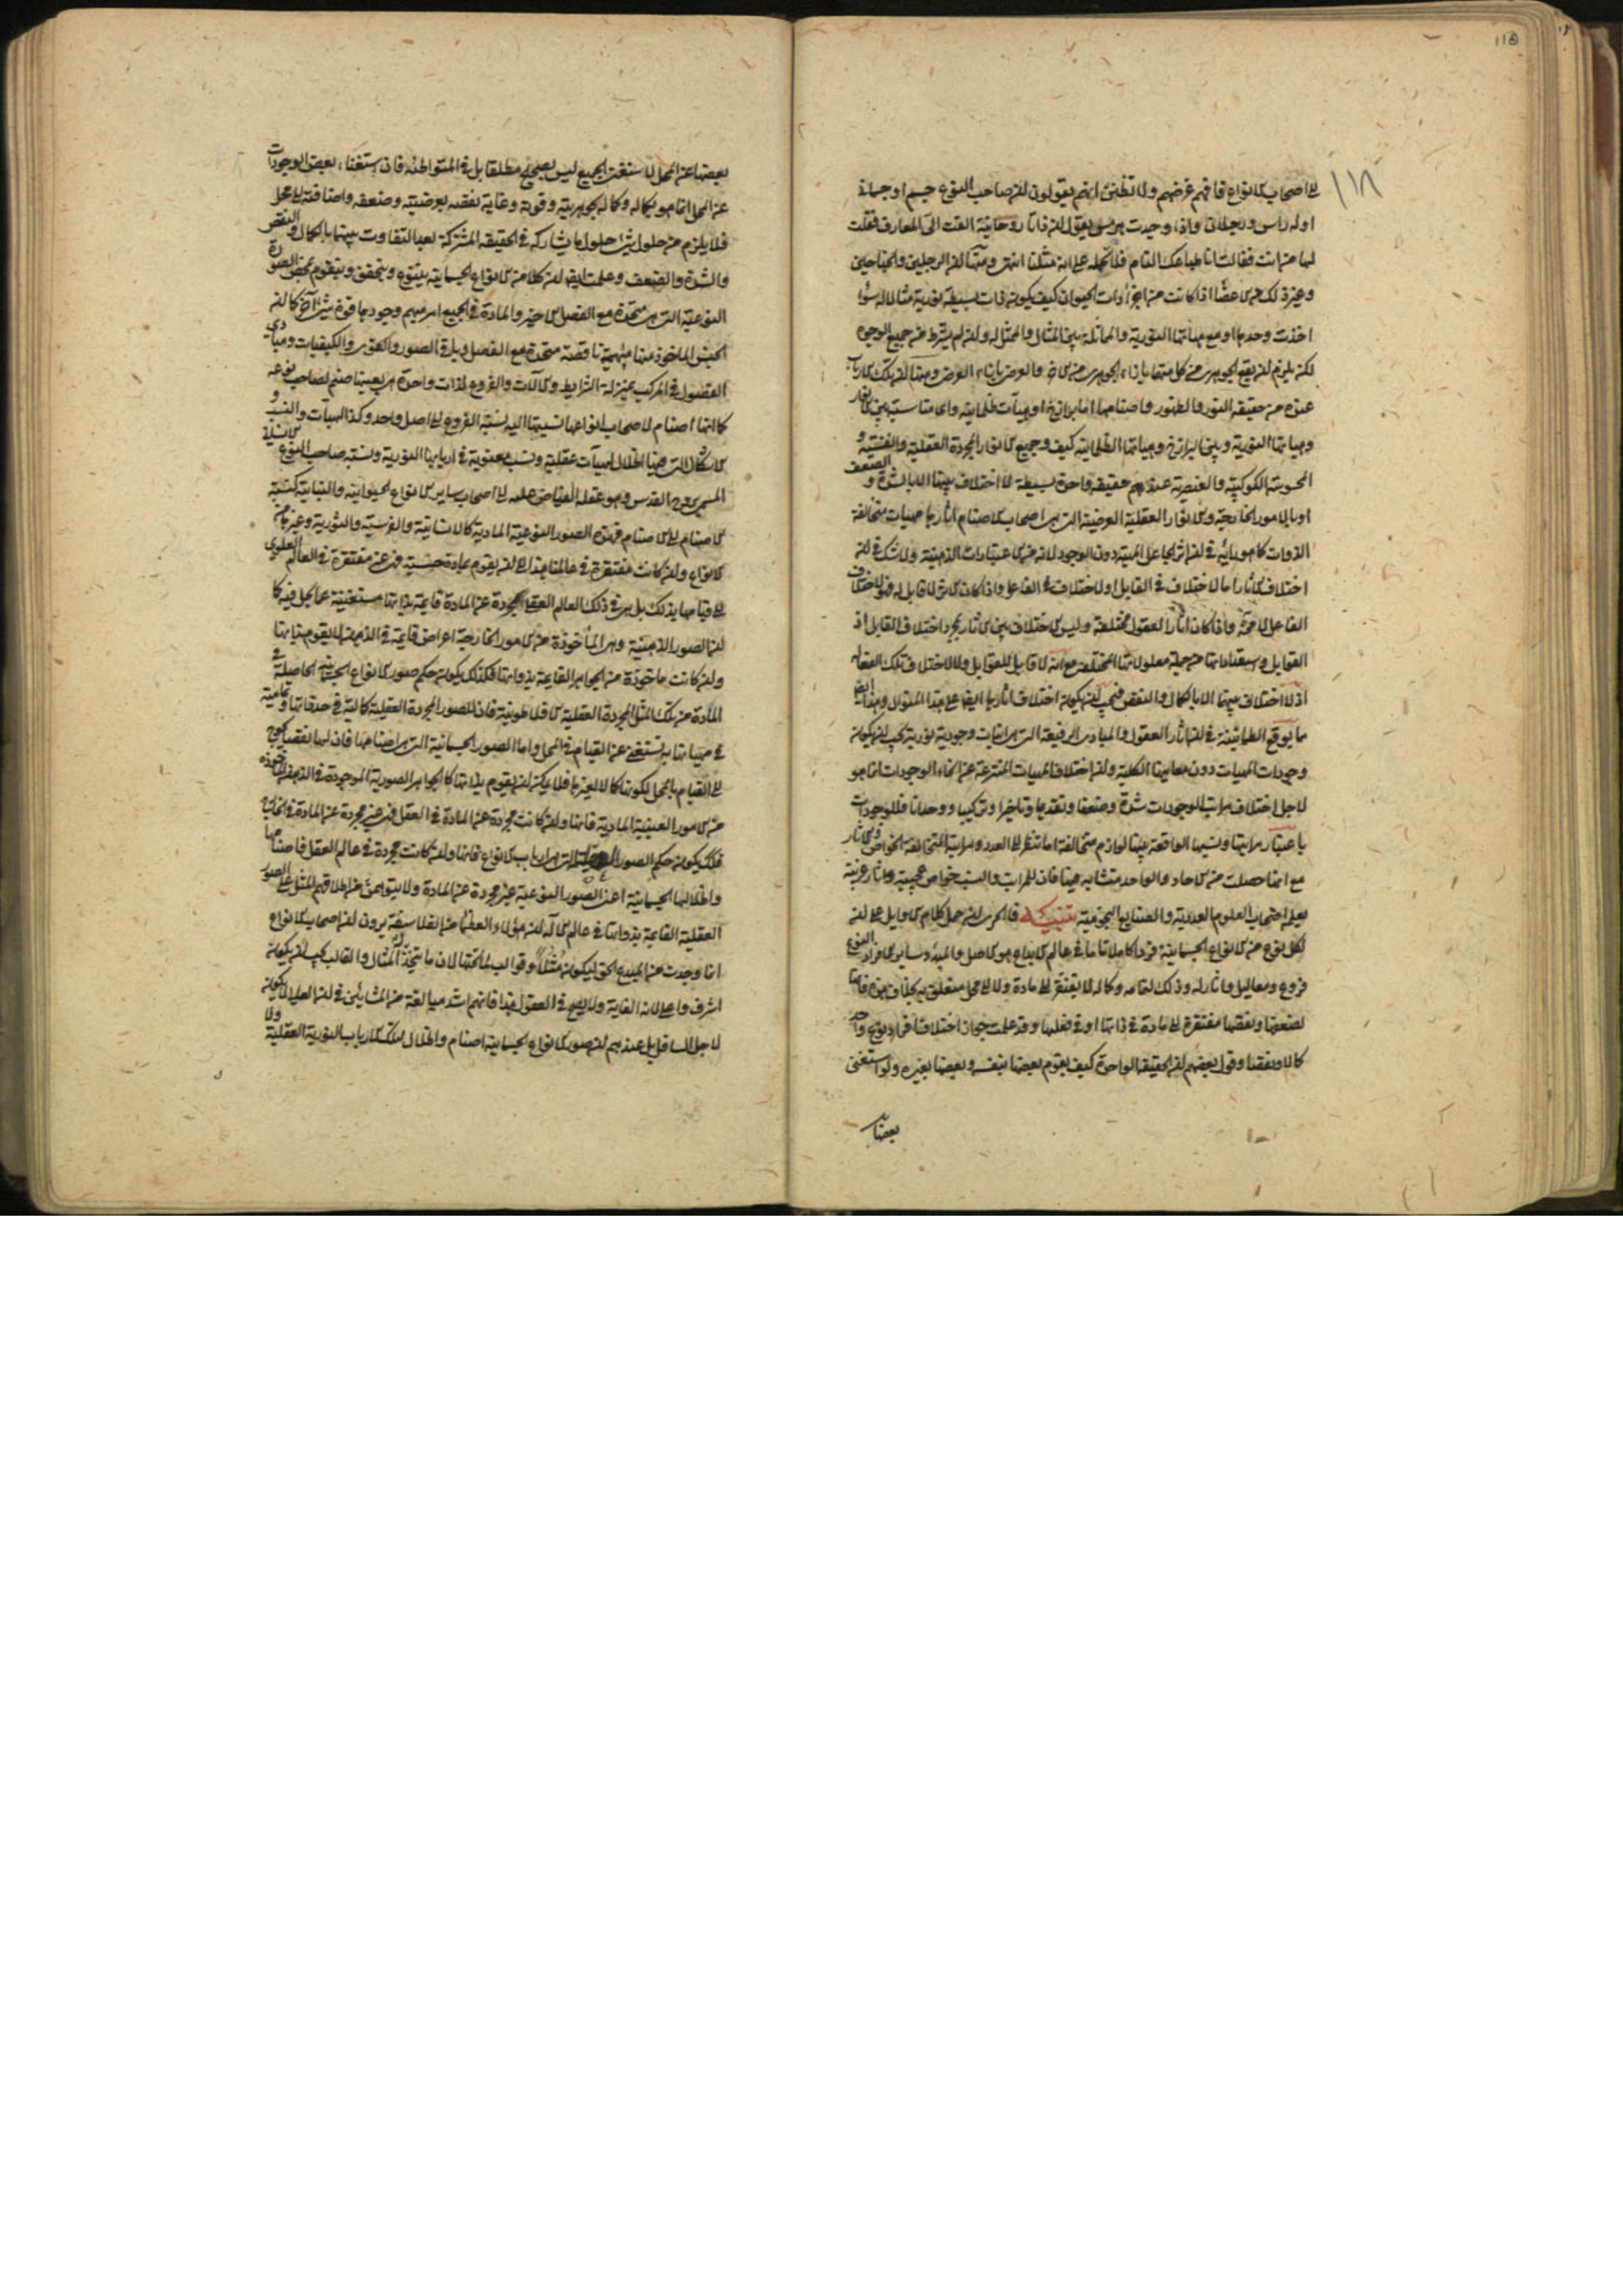 ١١٨
115
الى اصحاب الانواع فافهم غرضهم ولا تظنن انهم يقولون ان صاحب النوع جسم او جسمانى
او له راس و رجلان واذا وجدت هرمس يقول ان ذاتا روحانية القت الى المعارف فقلت
لها من انت فقالت انا طباعك التام فلا تحمله على انه مثلنا انتهى ومنها ان الرجلين والجناحين
وغير ذلك من الاعضاء اذا كانت من اجزاء ذات الحيوان كيف يكون ذات بسيطة نورية مثالا له سواء
اخذت وحدها او مع هيأتها النورية والمماثلة بين المثال والممثل له وان لم يشترط من جميع الوجوه
لكن يلزم ان يقع الجوهر من كل منهما بازاء الجوهر من الاخر والعرض بازاء العرض ومنها ان تلك الارباب
عنده من حقيقة النور والظهور واصنامها اما برازخ او هيآت ظلمانية واى مناسبة بين الانوار
وهيأتها النورية وبين البرازخ وهيأتها الظلمانية كيف وجميع الانوار المجردة العقلية والنفسية و
المحسوسة الكوكبية والعنصرية عندهم حقيقة واحدة بسيطة لا اختلاف بينها الا بالشدة و الضعف
او بالامور الخارجة والانوار العقلية العرضية التى هى اصحاب الاصنام آثارها مهيات متخالفة
الذوات كما هو رأيه فى ان اثر الجاعل المهية دون الوجود لانه من الاعتبارات الذهنية ولا شك فى ان
اختلاف الآثار اما لاختلاف فى القابل او لاختلاف فى الفاعل واذا كان الاثر لا قابل له فهو لاختلاف
الفاعل لا محة واذا كان آثار العقول مختلفة وليس الاختلاف بين الآثار بمجرد اختلاف القابل اذ
القوابل واستعداداتها من جملة معلولاتها المختلفة مع انه لا قابل للقوابل ولا لاختلاف تلك الفعالة
اذ لا اختلاف بينها الا بالكمال والنقص فيجب ان يكون اختلاف آثارها ايضا على هذا المنوال وهذا ايض
ما يوقع الطمانينة فى ان آثار العقول والمبادى الرفيعة التى هى انيات وجودية نورية يجب ان يكون
وجودات المهيات دون معانيها الكلية وان اختلاف المهيات المنتزعة عن انحاء الوجودات انما هو
لاجل اختلاف مراتب الوجودات شدة وضعفا وتقدما وتاخرا وتركيبا ووحدانا فللوجودات
باعتبار مراتبها ونسبها الواقعة بينها لوازم متخالفة اما تنظر الى العدد ومراتبه المتخالفة الخواص والآثار
مع انها حصلت من الآحاد والواحد متشابه فيها فان للمراتب والنسب خواص عجيبة وآثار غريبة
يعلمها اصحاب العلوم العددية والصنايع النجومية تنبيه فالحرى ان يحمل كلام الاوايل على ان
لكل نوع من الانواع الجسمانية فردا كاملا تاما فى عالم الابداع هو الاصل والمبدء وساير الافراد النوع
فروع ومعاليل وآثار له وذلك لتمامه وكماله لا يفتقر الى مادة ولا الى محل متعلق به بخلاف هذه فانها
لضعفها ونقصها مفتقرة الى مادة فى ذاتها او فى فعلها وقد علمت جواز اختلاف افراد نوع واحد
كمالا ونقصا وقول بعضهم ان الحقيقة الواحدة كيف يقوم بعضها بنفسه وبعضها بغيره ولو استغنى
بعضها
بعضها عن المحل لاستغنى الجميع ليس بصحيح مطلقا بل فى المتواطئة فان استغناء بعض الوجودات
عن المحل انما هو بكماله وكماله بجوهريته وقوته وغاية نقصه بعرضيته وضعفه واضافته الى محل
فلا يلزم من حلول شئ حلول ما يشاركه فى الحقيقة المشتركة بعد التفاوت بينهما بالكمال و النقص
والشدة والضعف وعلمت ايضا ان كلا من الانواع الجسمانية يتنوع ويتحقق ويتقوم بمحض الصورة
النوعية التى هى متحدة مع الفصل الاخير والمادة فى الجميع امر مبهم وجودها قوة شئ آخر كما ان
الجنس الماخوذ منها مهية ناقصة متحدة مع الفصل وباقى الصور والقوى والكيفيات ومبادى
الفصول فى المركب بمنزلة الشرايط والآلات والفروع لذات واحدة هى بعينها صنم لصاحب نوعه
كما انها اصنام لاصحاب انواعها نسبتها اليه نسبة الفروع الى اصل واحد وكذا الهيآت والنسب و
الاشكال التى فيها اظلال لهيآت عقلية ونسب معنوية فى اربابها النورية ونسبة صاحب النوع الانسانى
المسمى بروح القدس وهو عقله الفياض عليه الى اصحاب ساير الانواع الحيوانية والنباتية كنسبة
الاصنام الى الاصنام فهذه الصور النوعية المادية كالانسانية والفرسية والثورية وغيرها من
الانواع وان كانت مفتقرة فى عالمنا هذا الى ان يقوم بمادة حسية فهى غير مفتقرة فى العالم العلوى
الى قيامها بذلك بل هى فى ذلك العالم العقلى مجردة عن المادة قائمة بذاتها مستغنية عما يحل فيه كما
ان الصور الذهنية وهى المأخوذة من الامور الخارجية اعراض قائمة فى الذهن لا يقوم بذاتها
وان كانت ماخوذة من الجواهر القائمة بذواتها فكذلك يكون حكم صور الانواع الجسمانية الحاصلة فى
المادة من تلك المثل المجردة العقلية الافلاطونية فان للصور المجردة العقلية كمالية فى حد ذاتها وتمامية
فى مهياتها به تستغنى عن القيام فى المحل واما الصور الجسمانية التى هى اصنامها فان لها نقصا يحوج
الى القيام بالمحل لكونها كمالا لغيرها فلا يمكن ان يقوم بذاتها كما الجواهر الصورية الموجودة فى الذهن الماخوذة
من الامور العينية المادية فانها وان كانت مجردة عن المادة فى العقل فهى غير مجردة عن المادة فى الخارج
فكك يكون حكم الصور العقلية التى هى ارباب الانواع فانها وان كانت مجردة فى عالم العقل فاصنامها
واظلالها الجسمانية اعنى الصور النوعية غير مجردة عن المادة ولا يتوهمن من اطلاقهم المثل على الصور
العقلية القائمة بذواتها فى عالم الاله ان هؤلاء العظماء من الفلاسفة يرون ان اصحاب الانواع
انما وجدت من المبدع الحق ليكون مثلا وقوالب لما تحتها لان ما يتخذ له المثال والقالب يجب ان يكون
اشرف واعلى لانه الغاية ولا يصح فى العقول هذا فانهم اشد مبالغة من المشائين فى ان العالى لا يكون
لاجل السافل بل عندهم ان صور الانواع الجسمانية اصنام واظلال لتلك الارباب النورية العقلية ولا